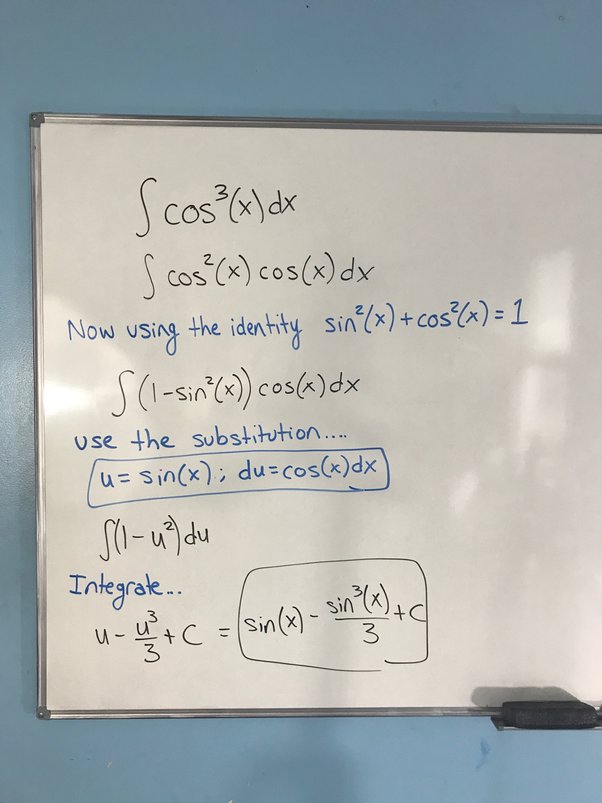 ∫ cos³(x) dx
∫ cos²(x) cos(x) dx
Now using the identity sin²(x) + cos²(x) = 1
∫ (1 - sin²(x)) cos(x) dx
use the substitution....
u = sin(x); du = cos(x) dx
∫ (1 - u²) du
Integrate...
u - u³/3 + C = sin(x) - sin³(x)/3 + C